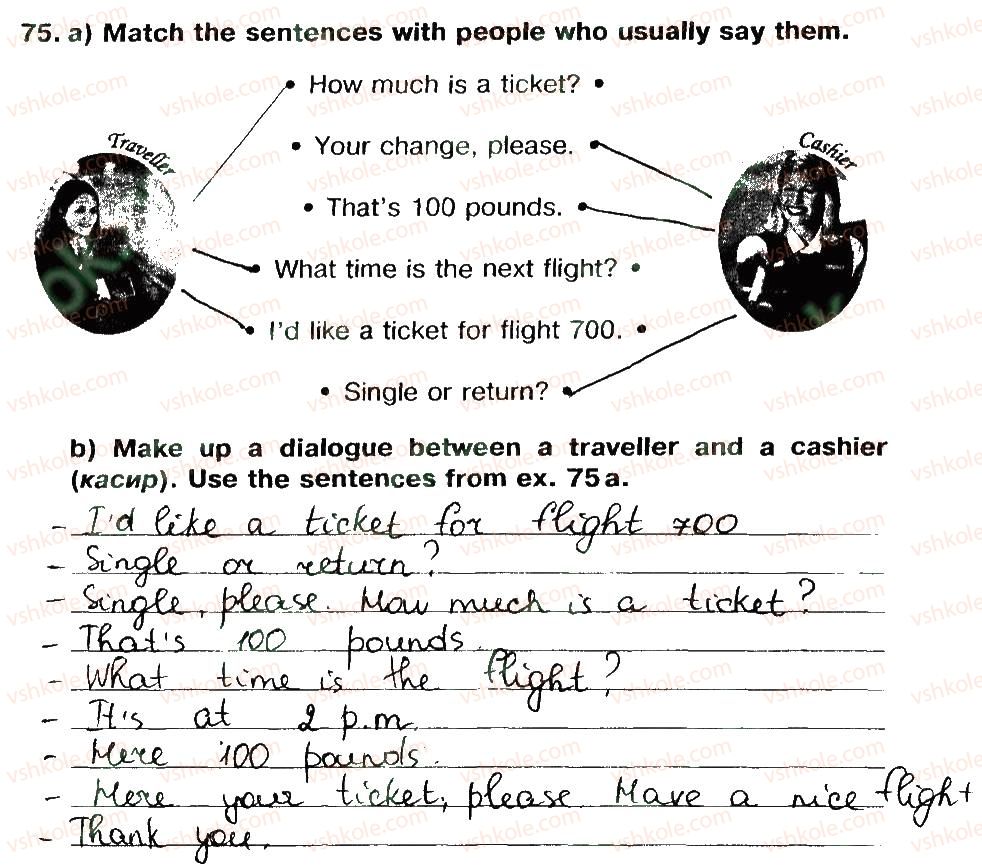 75. a) Match the sentences with people who usually say them.
• How much is a ticket? •
Traveller
Cashier
• Your change, please. •
• That's 100 pounds. •
• What time is the next flight? •
• I'd like a ticket for flight 700. •
• Single or return? •
b) Make up a dialogue between a traveller and a cashier
(касир). Use the sentences from ex. 75 a.
- I'd like a ticket for flight 700
- Single or return?
- Single, please. How much is a ticket?
- That's 100 pounds.
- What time is the flight?
- It's at 2 p.m.
- Here 100 pounds.
- Here your ticket, please Have a nice flight
- Thank you.
vshkole.com